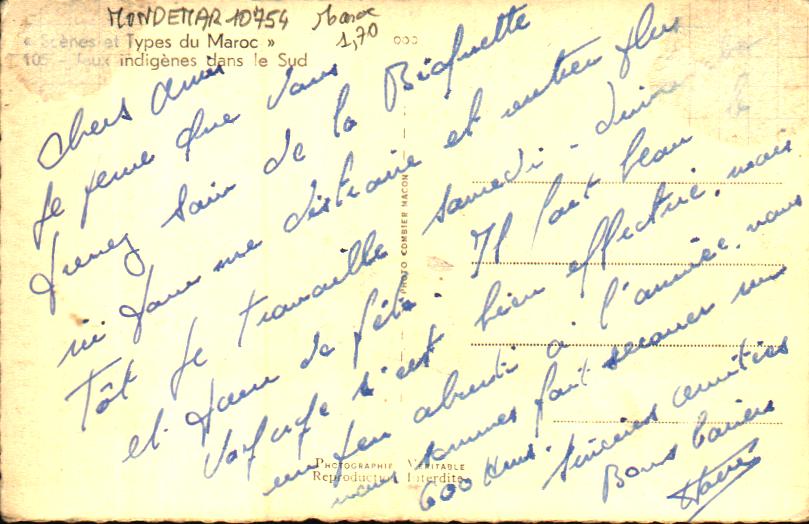 MONDEMAR 10754 Maroc
1,70
« Scènes et Types du Maroc »
105 - Jeux indigènes dans le Sud
Chers amis
Je pense que vous
prenez soin de la Biquette
ni pour me distraire et rentrer plus
Tôt je travaille samedi -
et jour de fête. Il fait beau le
voyage s'est bien effectué, mais
un peu abruti à l'arrivée. nous
nous sommes fait secouer sur
600 kms. Sincères amitiés
Bons baisers
PHOTO COMBIER MACON
PHOTOGRAPHIE VÉRITABLE
Reproduction Interdite